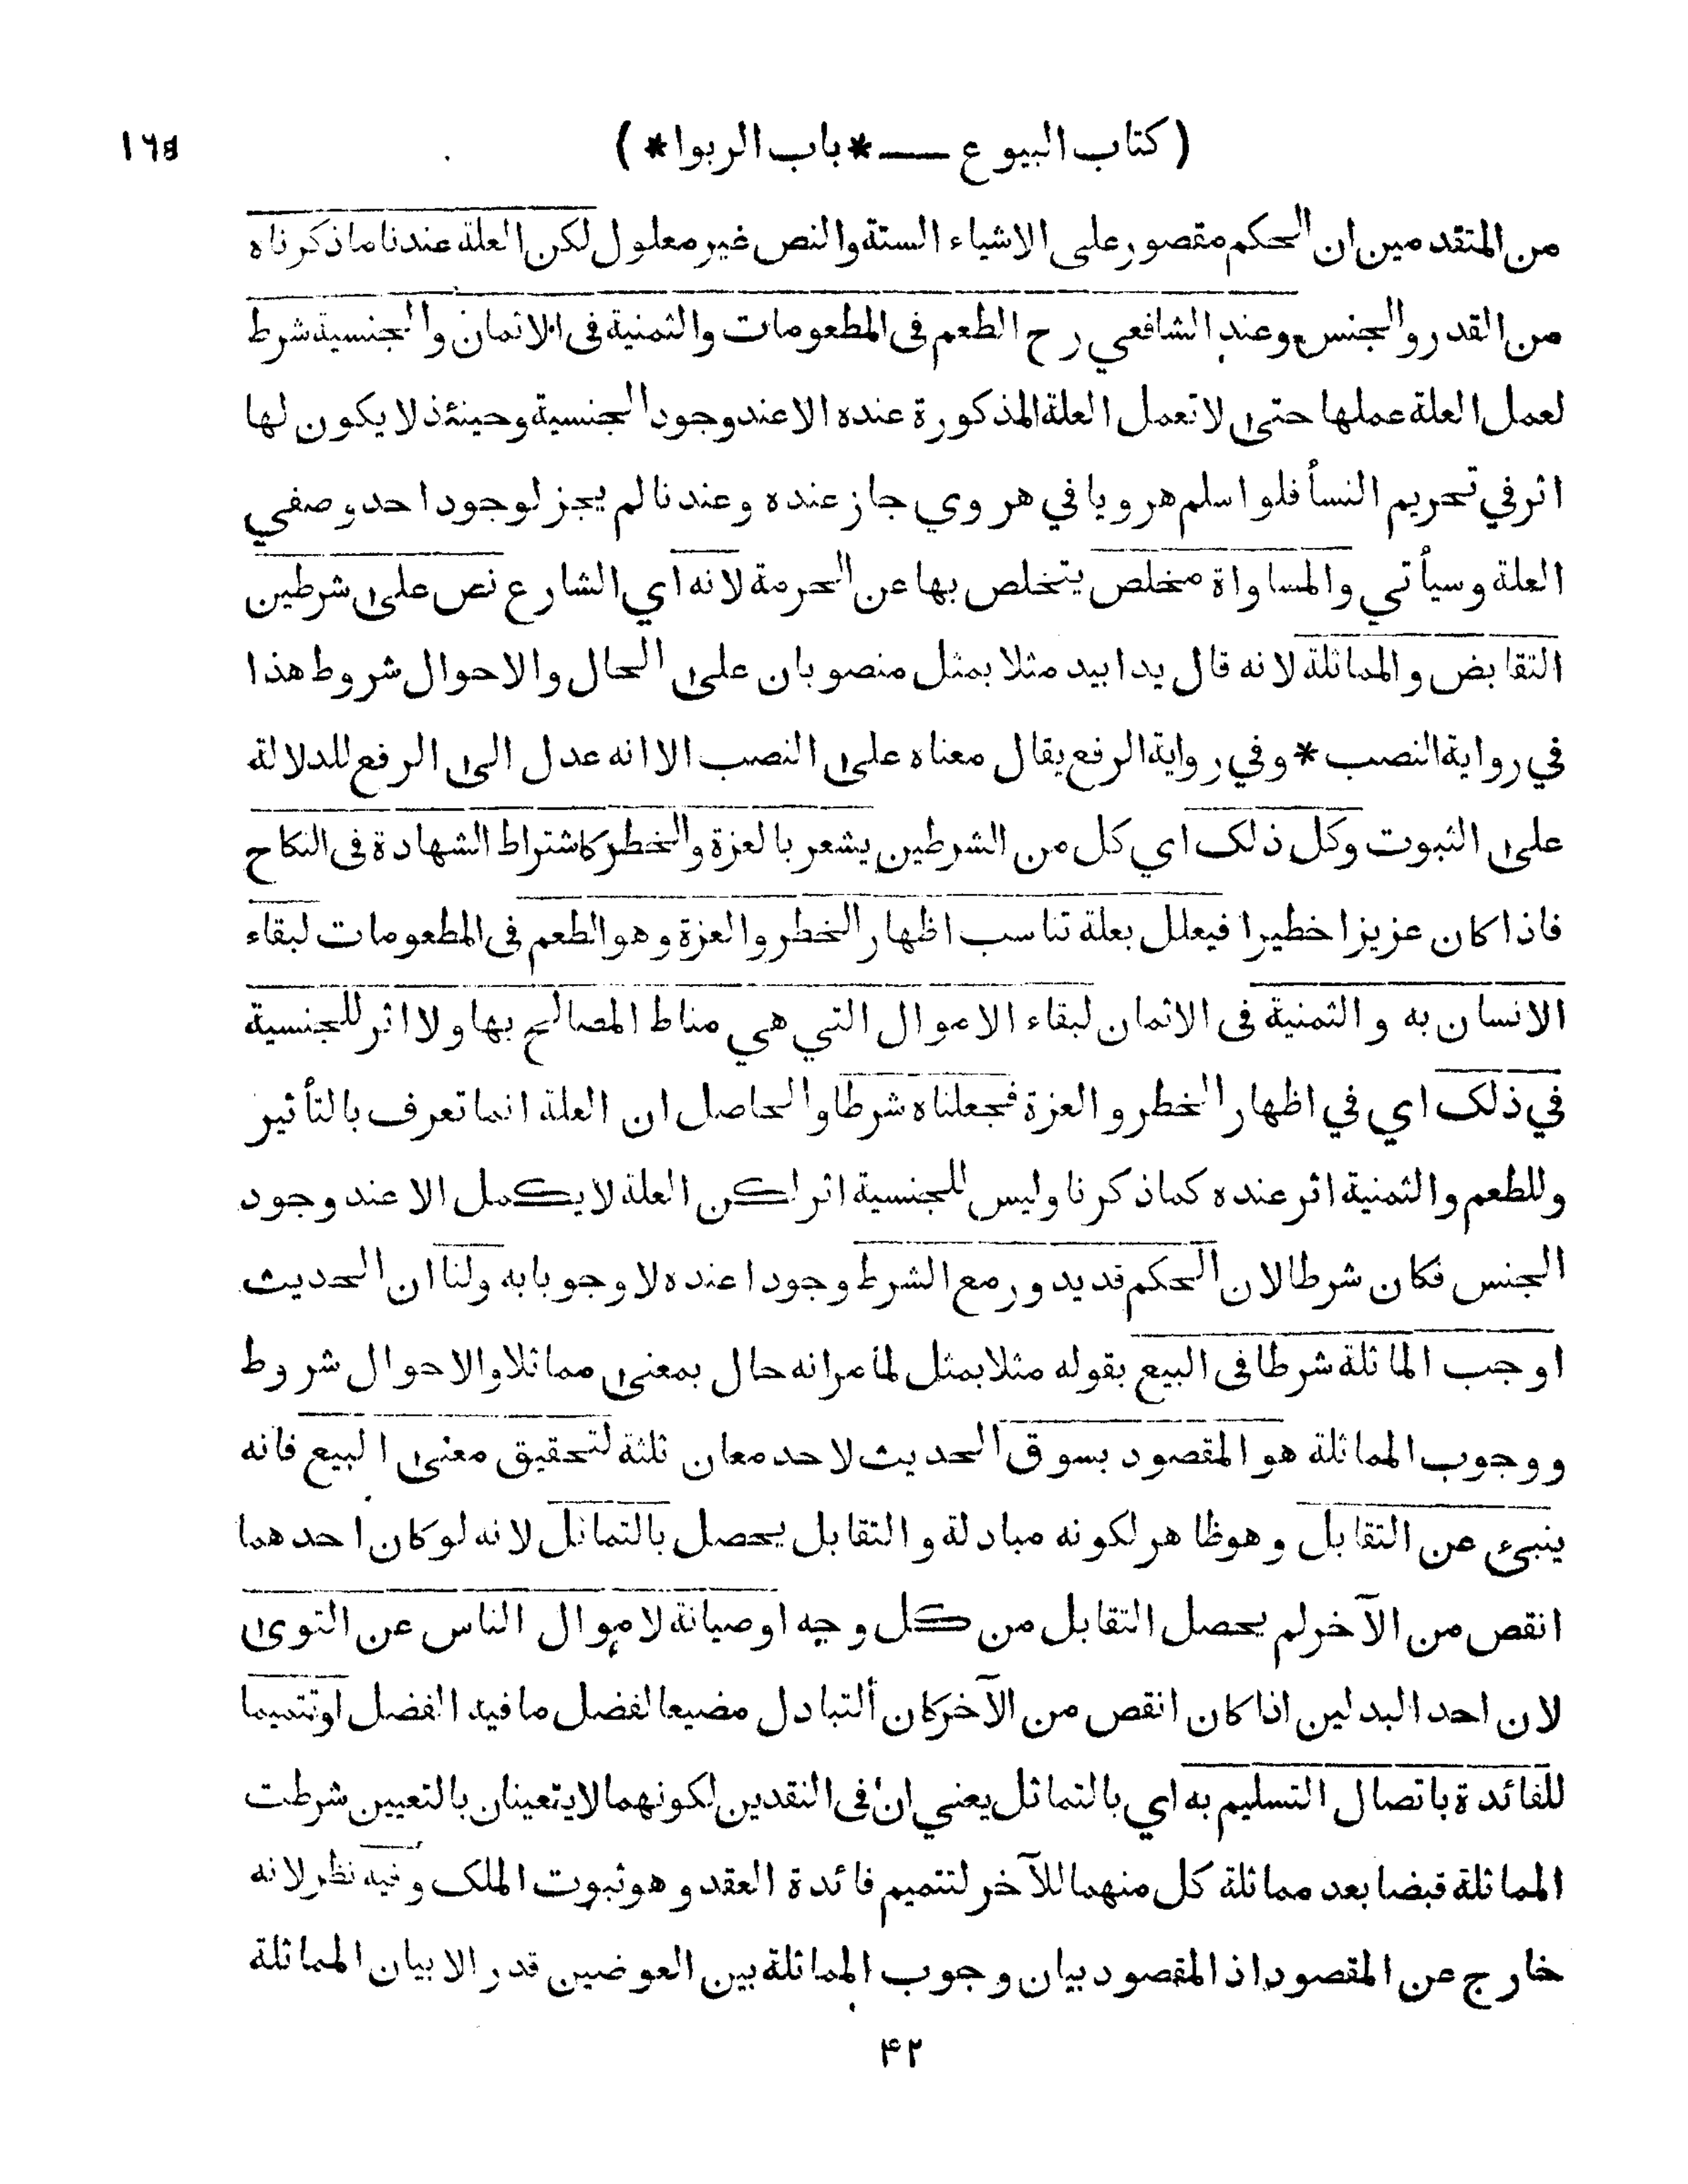 ( كتاب البيوع —— * باب الربوا * ) ١٦٥
من المتقدمين ان الحكم مقصور على الاشياء الستة والنص غير معلول لكن العلة عندنا ما ذكرناه
من القدر والجنس وعند الشافعي رح الطعم فى المطعومات والثمنية فى الاثمان والجنسية شرط
لعمل العلة عملها حتى لا تعمل العلة المذكورة عنده الا عند وجود الجنسية وحينئذ لا يكون لها
اثر في تحريم النسأ فلو اسلم هرويا في هروي جاز عنده وعندنا لم يجز لوجود احد وصفي
العلة وسيأتي والمساواة مخلص يتخلص بها عن الحرمة لانه اي الشارع نص على شرطين
التقابض والمماثلة لانه قال يدا بيد مثلا بمثل منصوبان على الحال والاحوال شروط هذا
في رواية النصب * وفي رواية الرفع يقال معناه على النصب الا انه عدل الى الرفع للدلالة
على الثبوت وكل ذلك اي كل من الشرطين يشعر بالعزة والخطر كاشتراط الشهادة فى النكاح
فاذا كان عزيزا خطيرا فيعلل بعلة تناسب اظهار الخطر والعزة وهو الطعم فى المطعومات لبقاء
الانسان به والثمنية فى الاثمان لبقاء الاموال التي هي مناط المصالح بها ولا اثر للجنسية
في ذلك اي في اظهار الخطر والعزة فجعلناه شرطا والحاصل ان العلة انما تعرف بالتأثير
وللطعم والثمنية اثر عنده كما ذكرنا وليس للجنسية اثر لكن العلة لا يكمل الا عند وجود
الجنس فكان شرطا لان الحكم قد يدور مع الشرط وجودا عنده لا وجوبا به ولنا ان الحديث
اوجب الماثلة شرطا فى البيع بقوله مثلا بمثل لما مر انه حال بمعنى مماثلا والاحوال شروط
ووجوب المماثلة هو المقصود بسوق الحديث لاحد معان ثلثة لتحقيق معنى البيع فانه
ينبئ عن التقابل وهو ظاهر لكونه مبادلة والتقابل يحصل بالتماثل لانه لو كان احدهما
انقص من الآخر لم يحصل التقابل من كل وجه او صيانة لاموال الناس عن التوى
لان احد البدلين اذا كان انقص من الآخر كان ألتبادل مضيعا لفضل ما فيه الفضل او تتميما
للفائدة باتصال التسليم به اي بالتماثل يعني ان فى النقدين لكونهما لا يتعينان بالتعيين شرطت
المماثلة قبضا بعد مماثلة كل منهما للآخر لتتميم فائدة العقد وهو ثبوت الملك وفيه نظر لانه
خارج عن المقصود اذ المقصود بيان وجوب المماثلة بين العوضين قدر الا بيان المماثلة
۴۲